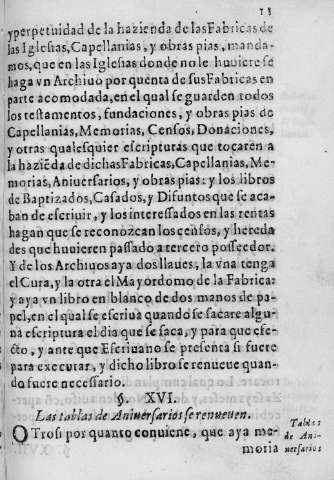 13
y perpetuidad de la hazienda de las Fabricas de
las Iglesias, Capellanias, y obras pias, manda-
mos, que en las Iglesias donde no le huuiere se
haga vn Archiuo por quenta de sus Fabricas en
parte acomodada, en el qual se guarden todos
los testamentos, fundaciones, y obras pias de
Capellanias, Memorias, Censos, Donaciones,
y otras qualesquier escripturas que tocaren a
la haziẽda de dichas Fabricas, Capellanias, Me-
morias, Aniuersarios, y obras pias: y los libros
de Baptizados, Casados, y Difuntos que se aca-
ban de escriuir, y los interessados en las rentas
hagan que se reconozcan los censos, y hereda
des que huuieren passado a tercero posseedor.
Y de los Archiuos aya dos llaues, la vna tenga
el Cura, y la otra el Mayordomo de la Fabrica:
y aya vn libro en blanco de dos manos de pa-
pel, en el qual se escriua quando se sacare algu-
na escriptura el dia que se saca, y para que efe-
cto, y ante que Escriuano se presenta si fuere
para executar, y dicho libro se renueue quan-
do fuere necessario.
§. XVI.
Las tablas de Aniuersarios se renueuen.
OTrosi por quanto conuiene, que aya me-
moria
Tablas
de Ani-
uersarios